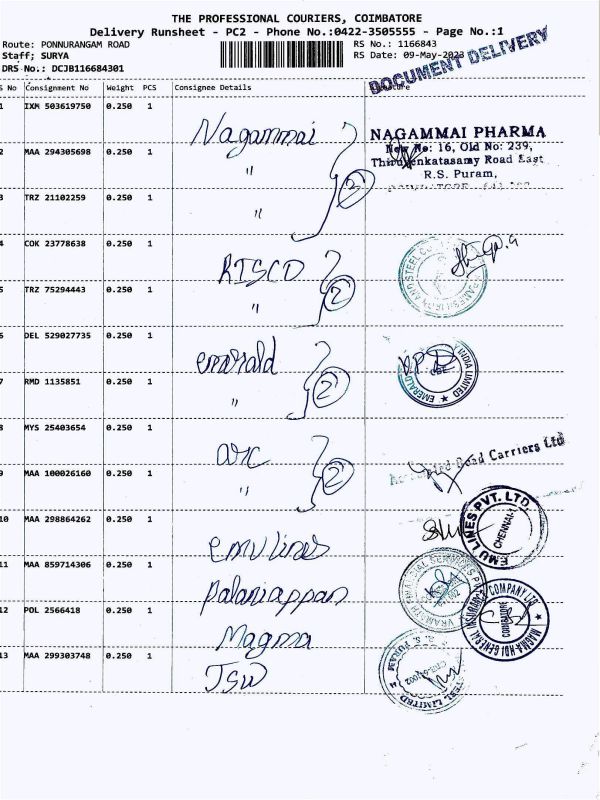 THE PROFESSIONAL COURIERS, COIMBATORE
Delivery Runsheet - PC2 - Phone No.:0422-3505555 - Page No.:1
Route: PONNURANGAM ROAD
Staff; SURYA
DRS No.: DCJB116684301
RS No.: 1166843
RS Date: 09-May-2023
DOCUMENT DELIVERY
S No Consignment No Weight PCS Consignee Details
1 IXM 503619750 0.250 1
Nagammai
NAGAMMAI PHARMA
New No: 16, Old No: 239,
2 MAA 294305698 0.250 1 "
Thiruvenkatasamy Road East
R.S. Puram,
3 TRZ 21102259 0.250 1 "
4 COK 23778638 0.250 1 RISCO
5 TRZ 75294443 0.250 1 " 2
6 DEL 529027735 0.250 1 emerald
EMERALD INDIA LIMITED
CBE
7 RMD 1135851 0.250 1 " 2
8 MYS 25403654 0.250 1 arc
Road Carriers Ltd
9 MAA 100026160 0.250 1 " 2
10 MAA 298864262 0.250 1 emu lines
EMU LINES PVT. LTD
CHENNAI-1
11 MAA 859714306 0.250 1 Palaniappan
12 POL 2566418 0.250 1 Magma
MAGMA HDI GENERAL INSURANCE COMPANY LTD
COIMBATORE
13 MAA 299303748 0.250 1 JSW
STEEL LIMITED